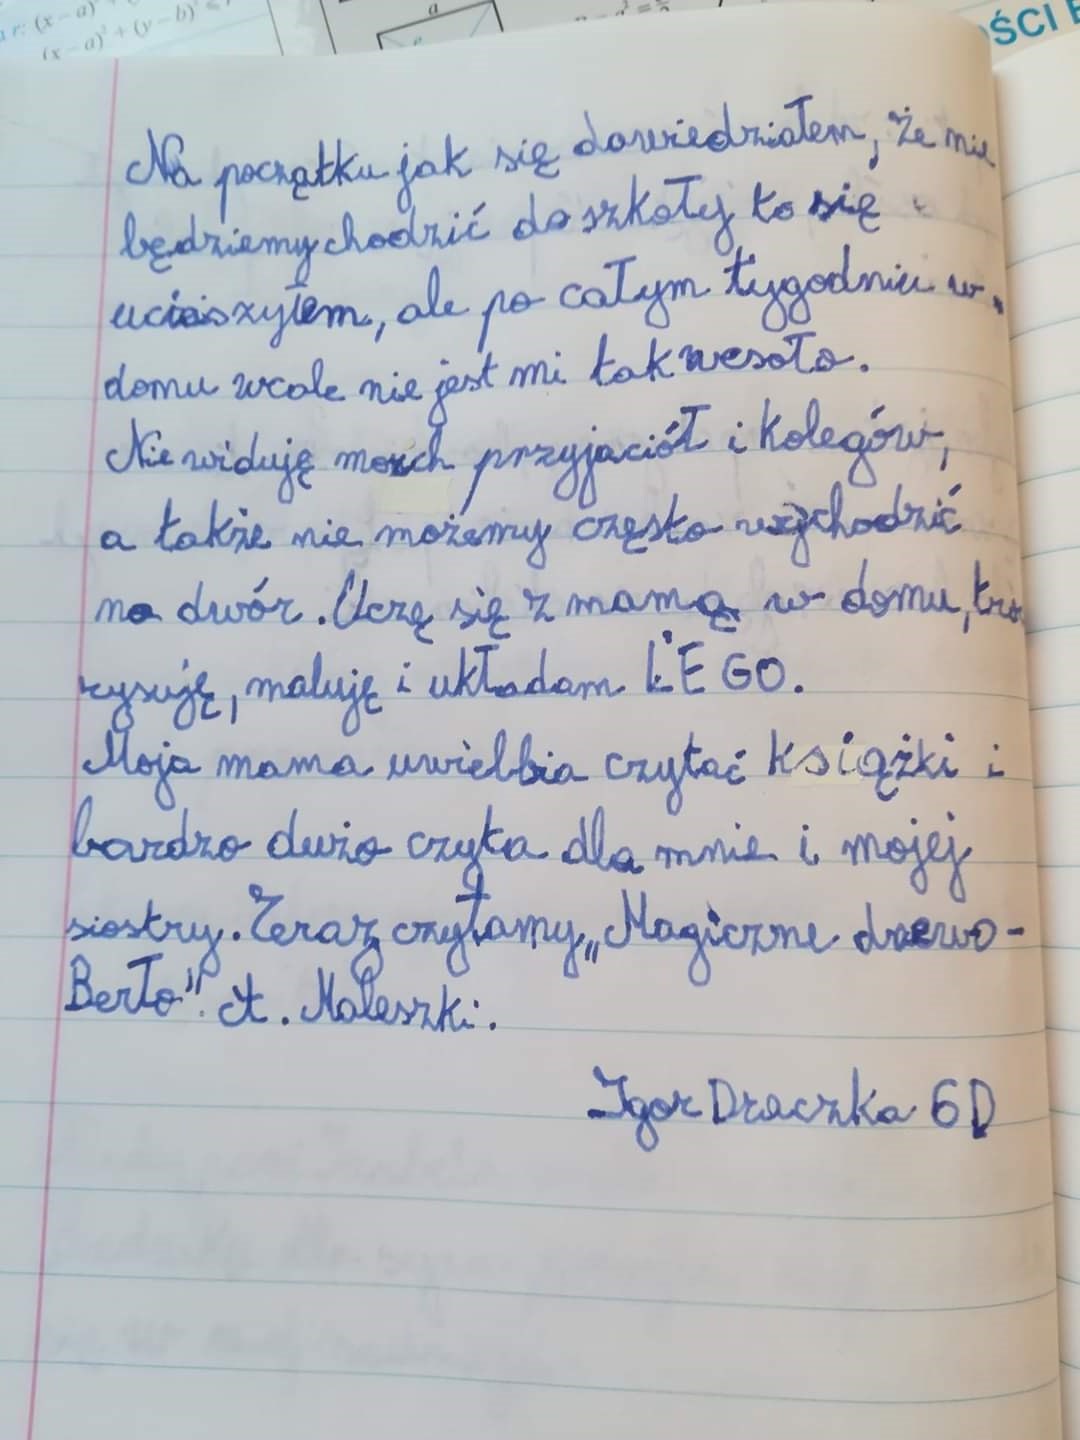 (x-a)² + (y-b)²
a
OŚCI
Na początku jak się dowiedziałem, że nie
będziemy chodzić do szkoły to się
ucieszyłem, ale po całym tygodniu w
domu wcale nie jest mi tak wesoło.
Nie widuję moich przyjaciół i kolegów,
a także nie możemy często wychodzić
na dwór. Uczę się z mamą w domu,
rysuję, maluję i układam LEGO.
Moja mama uwielbia czytać książki i
bardzo dużo czyta dla mnie i mojej
siostry. Teraz czytamy „Magiczne drzewo-
Berło" A. Maleszki.
Igor Draczka 6D